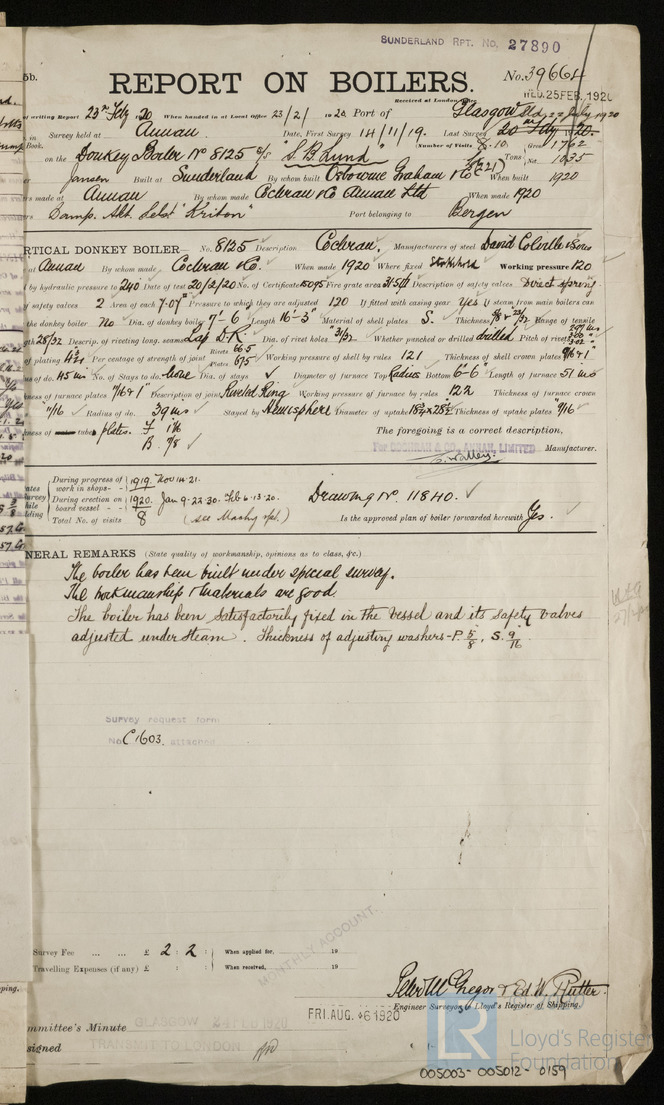 SUNDERLAND RPT. No. 27890
5b.
REPORT ON BOILERS.
No. 39664
Received at London Office WED. 25 FEB. 1920
of writing Report 23rd Feb 1920 When handed in at Local Office 23/2/1920 Port of Glasgow
in Survey held at Annan Date, First Survey 14/11/19. Last Survey 1920.
Book. (Number of Visits 8.10.
on the Donkey Boiler No 8125 "S. B. Lund" Tons Gross 1762 Net 1035
Jansen Built at Sunderland By whom built Osbourne Graham & Co When built 1920
made at Annan By whom made Cochran & Co Annan Ltd When made 1920
Damp. Akt. Selst "Kriton" Port belonging to Bergen
RTICAL DONKEY BOILER No. 8125 Description Cochran. Manufacturers of steel David Colville & Sons
at Annan By whom made Cochran & Co. When made 1920 Where fixed Stokehold Working pressure 120
by hydraulic pressure to 240 Date of test 20/2/20 No. of Certificate 15095 Fire grate area Description of safety valves Direct spring
of safety valves 2 Area of each 7.07" Pressure to which they are adjusted 120 If fitted with easing gear Yes If steam from main boilers can
the donkey boiler No Dia. of donkey boiler 7'-6 Length 16'-3" Material of shell plates S. Thickness Range of tensile
gth 28/32 Descrip. of riveting long. seams Lap D.R. Dia. of rivet holes 31/32 Whether punched or drilled drilled Pitch of rivets
of plating Per centage of strength of joint Rivets 66.5 Plates 67.5 Working pressure of shell by rules 121 Thickness of shell crown plates
us of do. 45 ins No. of Stays to do. None Dia. of stays Diameter of furnace Top Radius Bottom 6-6" Length of furnace 51 ins
kness of furnace plates "/16 & 1" Description of joint Riveted Ring Working pressure of furnace by rules 122 Thickness of furnace crown
"/16 Radius of do. 39 ins Stayed by Hemisphere Diameter of uptake Thickness of uptake plates 9/16"
kness of tube plates. F. B. 7/8
The foregoing is a correct description,
For COCHRAN & CO., ANNAN, LIMITED Manufacturer.
During progress of work in shops - - 1919. Nov 14.21.
During erection on board vessel - - 1920. Jan 9.22.30. Feb 6.13.20.
Total No. of visits 8 (see Machy rpt.)
Drawing No. 11840.
Is the approved plan of boiler forwarded herewith Yes.
NERAL REMARKS (State quality of workmanship, opinions as to class, &c.)
The boiler has been built under special survey.
The workmanship & materials are good
The boiler has been satisfactorily fixed in the vessel and its safety valves
adjusted under steam. Thickness of adjusting washers - P. 5/8, S. 9/16.
Survey request form
No. C1603. attached
Survey Fee ... ... £ 2 : 2 : When applied for, 19
Travelling Expenses (if any) £ : : When received, 19
MONTHLY ACCOUNT.
Peter McGregor & Ed. W. Rutter.
Engineer Surveyor to Lloyd's Register of Shipping.
mmittee's Minute GLASGOW 24 FEB 1920 FRI. AUG. 6 1920
signed TRANSMIT TO LONDON
LR Lloyd's Register Foundation
005003-005012-0159